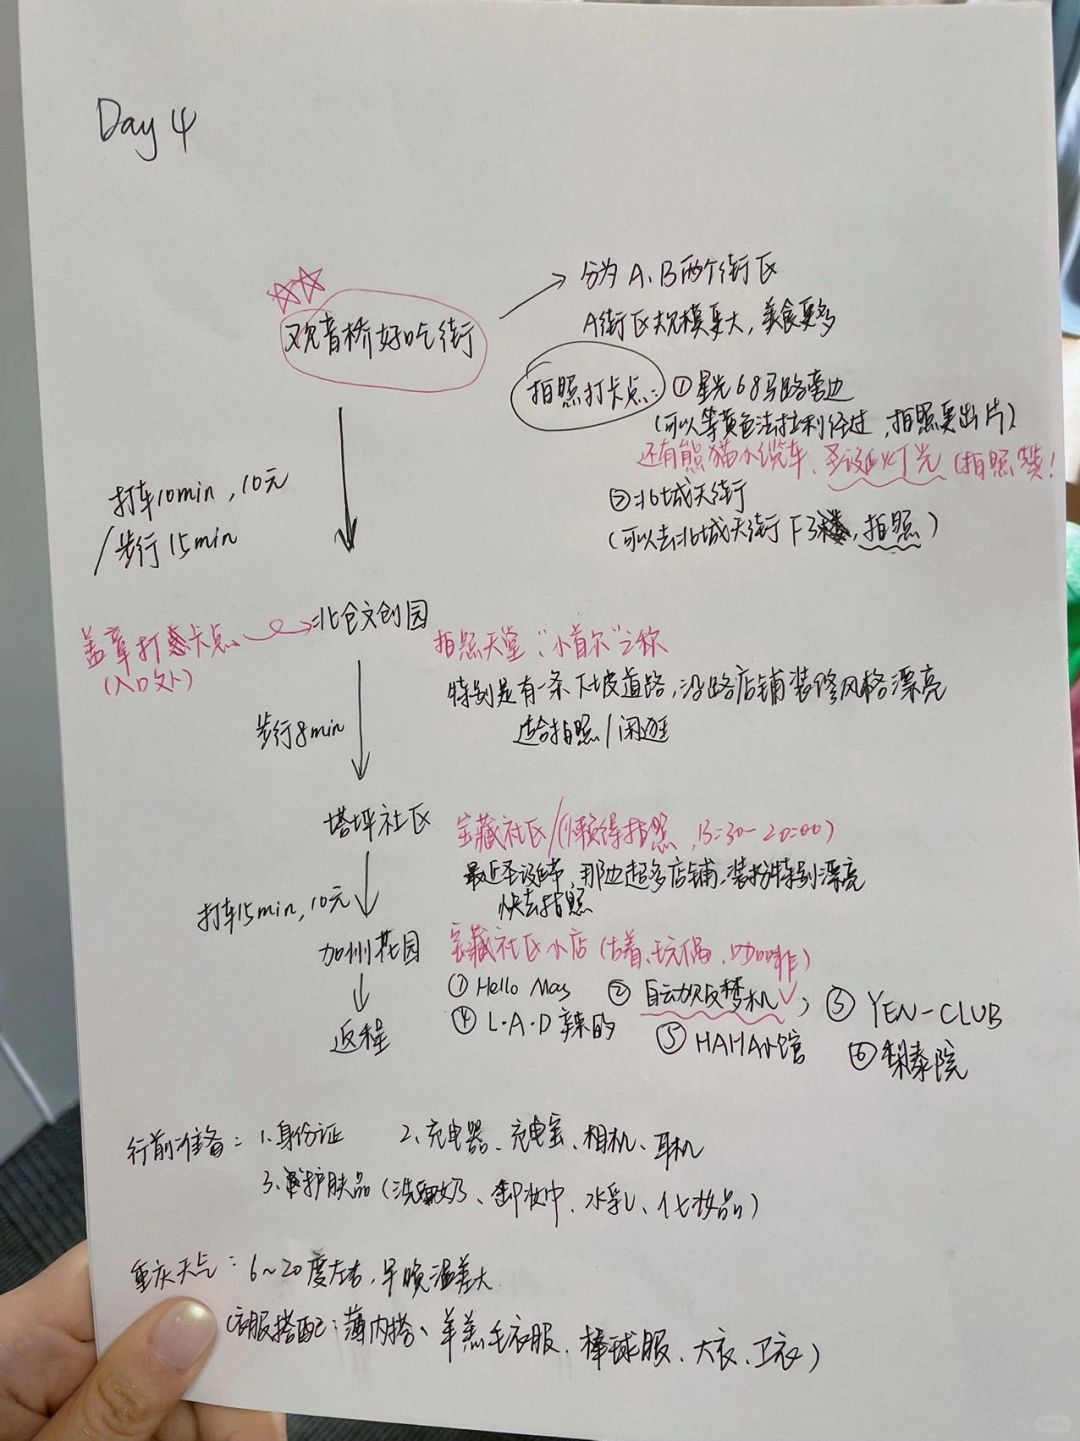 Day 4
观音桥好吃街
分为A、B两个街区
A街区规模更大,美食更多
拍照打卡点:①星光68马路旁边
(可以等黄色法拉利经过,拍照更出片)
还有熊猫小缆车、圣诞灯光(拍照赞!
②北城天街
(可以去北城天街F3楼,拍照)
打车10min,10元
/步行15min
北仓文创园
盖章打卡点
(入口外)
拍照天堂,"小首尔"之称
特别是有一条下坡道路,沿路店铺装修风格漂亮
适合拍照/闲逛
步行8min
塔坪社区
宝藏社区/(懒得拍照,13:30-20:00)
最近圣诞节,那边超多店铺、装扮特别漂亮
快去拍照
打车15min,10元
加州花园
宝藏社区小店(古着、玩偶、咖啡)
①Hello Mas ②自动贩梦机,③YEN-CLUB
④L·A·D辣的 ⑤HAHA小馆 ⑥梨泰院
返程
行前准备:1.身份证 2.充电器、充电宝、相机、耳机
3.护肤品(洗面奶、卸妆巾、水乳、化妆品)
重庆天气:6~20度左右,早晚温差大
(衣服搭配:薄内搭、羊羔毛衣服、棒球服、大衣、卫衣)